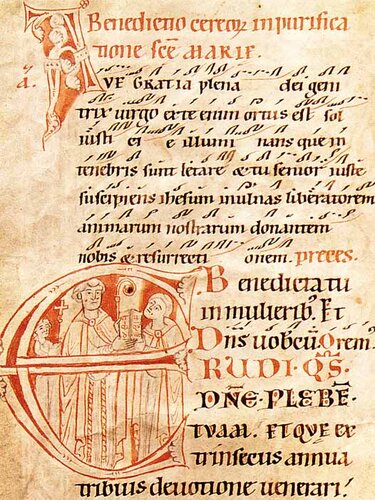 Benedictio cereoꝝ in purifica
tione scē MARIE.
a. AVE GRATIA plena dei geni
trix virgo ex te enim ortus est sol
iusti ci e illumi nans que in
tenebris sunt letare & tu senior iuste
suscipiens ihesum inulnas liberatorem
animarum nostrarum donantem
nobis & resurrecti onem. preces.
Benedicta tu
in mulierib;. Et
Dn̄s uobcū. Orem᷒
ERUDI. QS̄.
DN̄E. PLEBĒ.
TVAM. ET QVE EX
trinsecus annua
tribuis deuotione uenerari